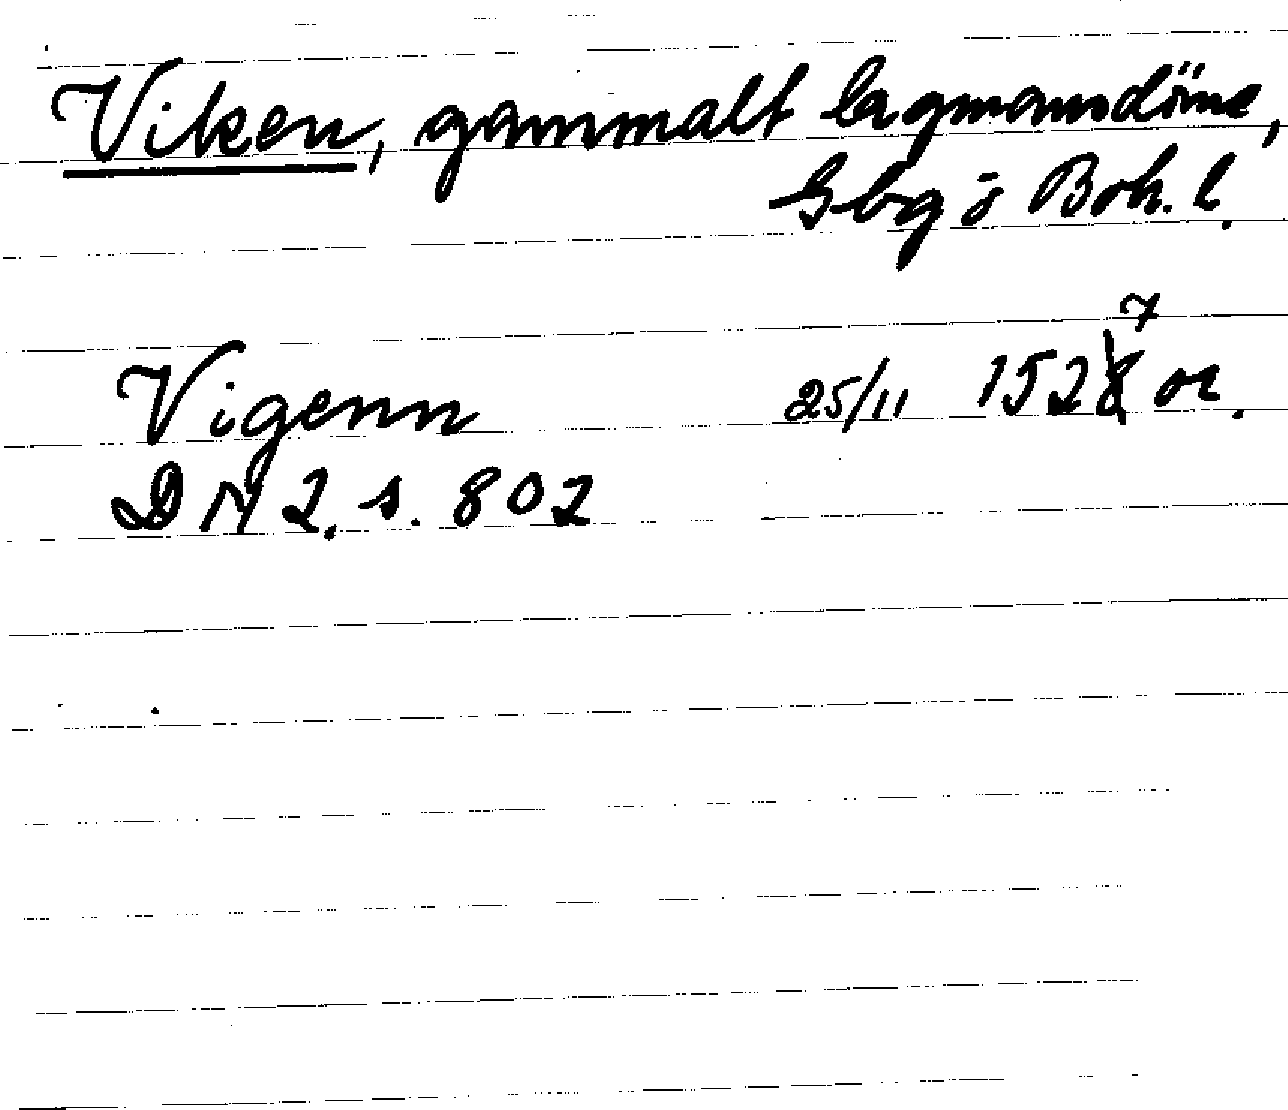 Viken, gammalt lagmansdöme,
Gbg o Boh. l.
Vigenn 25/11 1527 or.
DN 2. s. 802